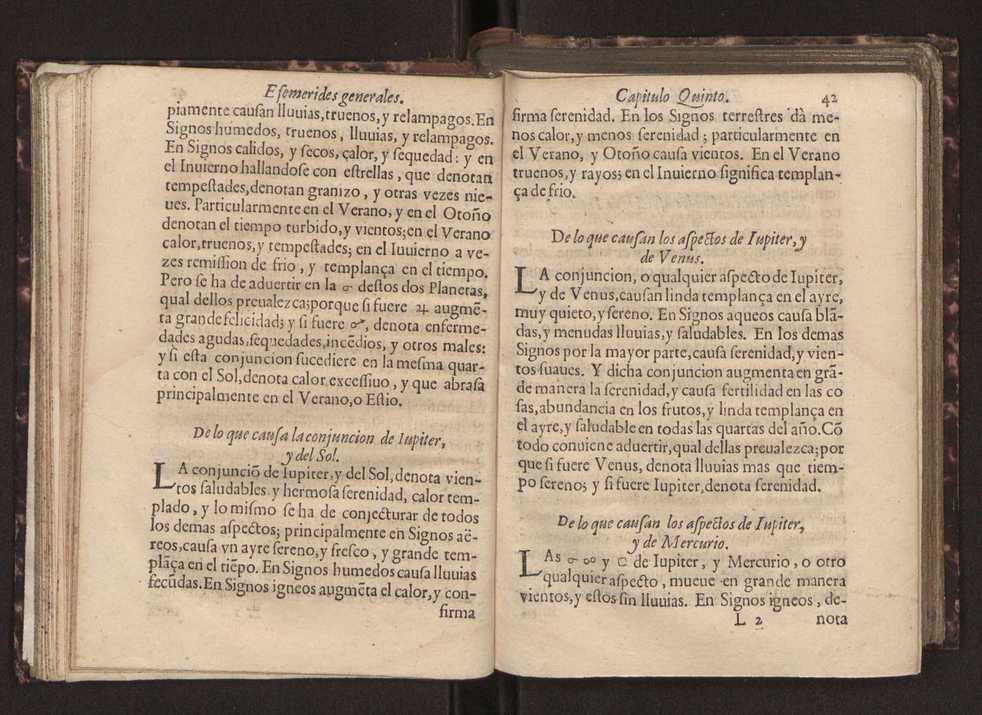 Esemerides generales.
piamente causan lluuias, truenos, y relampagos. En
Signos humedos, truenos, lluuias, y relampagos.
En Signos calidos, y secos, çalor, y sequedad: y en
el Inuierno hallandose con estrellas, que denotan
tempestades, denotan granizo, y otras vezes nie-
ues. Particularmente en el Verano, y en el Otoño
denotan el tiempo turbido, y vientos; en el Verano
calor, truenos, y tempestades; en el Iuuierno a ve-
zes remission de frio, y templança en el tiempo.
Pero se ha de aduertir en la ☌ destos dos Planetas,
qual dellos preualezca; porque si fuere ♃ augmẽ-
ta grande felicidad; y si fuere ♂, denota enferme-
dades agudas, sequedades, incẽdios, y otros males:
y si esta conjuncion sucediere en la mesma quar-
ta con el Sol, denota calor excessiuo, y que abrasa
principalmente en el Verano, o Estio.
De lo que causa la conjuncion de Iupiter,
y del Sol.
LA conjunciõ de Iupiter, y del Sol, denota vien-
tos saludables, y hermosa serenidad, calor tem-
plado, y lo mismo se ha de conjecturar de todos
los demas aspectos; principalmente en Signos aë-
reos, causa vn ayre sereno, y fresco, y grande tem-
plãça en el tiẽpo. En Signos humedos causa lluuias
fecũdas. En Signos igneos augmẽta el calor, y con-
firma
Capitulo Quinto. 42
firma serenidad. En los Signos terrestres dà me-
nos calor, y menos serenidad; particularmente en
el Verano, y Otoño causa vientos. En el Verano
truenos, y rayos; en el Inuierno significa templan-
ça de frio.
De lo que causan los aspectos de Iupiter, y
de Venus.
LA conjuncion, o qualquier aspecto de Iupiter,
y de Venus, causan linda templança en el ayre,
muy quieto, y sereno. En Signos aqueos causa blã-
das, y menudas lluuias, y saludables. En los demas
Signos por la mayor parte, causa serenidad, y vien-
tos suaues. Y dicha conjuncion augmenta en grã-
de manera la serenidad, y causa fertilidad en las co
sas, abundancia en los frutos, y linda templança en
el ayre, y saludable en todas las quartas del año. Cõ
todo conuiene aduertir, qual dellas preualezca; por
que si fuere Venus, denota lluuias mas que tiem-
po sereno; y si fuere Iupiter, denota serenidad.
De lo que causan los aspectos de Iupiter,
y de Mercurio.
LAs ☌ ☍ y □ de Iupiter, y Mercurio, o otro
qualquier aspecto, mueue en grande manera
vientos, y estos sin lluuias. En Signos igneos, de-
L 2 nota